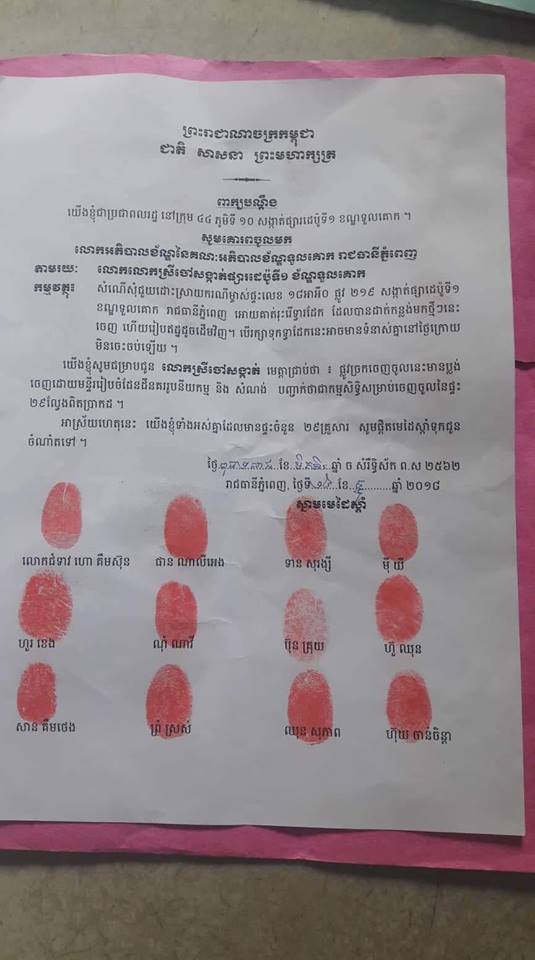 ព្រះរាជាណាចក្រកម្ពុជា
ជាតិ សាសនា ព្រះមហាក្សត្រ
ពាក្យបណ្តឹង
យើងខ្ញុំជាប្រជាពលរដ្ឋ នៅក្រុម ៤៤ ភូមិទី ១០ សង្កាត់ផ្សារដេប៉ូទី១ ខណ្ឌទួលគោក ។
សូមគោរពចូលមក
លោកអភិបាលខ័ណ្ឌនៃគណៈអភិបាលខ័ណ្ឌទួលគោក រាជធានីភ្នំពេញ
តាមរយៈ លោកលោកស្រីចៅសង្កាត់ផ្សារដេប៉ូទី១ ខ័ណ្ឌទួលគោក
កម្មវត្ថុ៖ សំណើសុំជួយដោះស្រាយករណីម្ចាស់ផ្ទះលេខ ១៨អាអឺ០ ផ្លូវ ២១៩ សង្កាត់ផ្សាដេប៉ូទី១
ខណ្ឌទួលគោក រាជធានីភ្នំពេញ អោយគាត់រុះរើទ្វារដែក ដែលបានដាក់កន្លង់មកថ្មីៗនេះ
ចេញ ហើយរៀបឥដ្ឋដូចដើមវិញ។ បើរក្សាទុកទ្វាដែកនេះអាចមានទំនាស់គ្នានៅថ្ងៃក្រោយ
មិនចេះចប់ឡើយ ។
យើងខ្ញុំសូមជម្រាបជូន លោកស្រីចៅសង្កាត់ មេត្តាជ្រាប់ថា ៖ ផ្លូវច្រកចេញចូលនេះមានប្លង់
ចេញដោយមន្ទីររៀបចំដែនដីនគរូបនីយកម្ម និង សំណង់ បញ្ជាក់ថាជាកម្មសិទ្ធិសម្រាប់ចេញចូលនៃផ្ទះ
២៩ល្វែងពិតប្រាកដ ។
អាស្រ័យហេតុនេះ យើងខ្ញុំទាំងអស់គ្នាដែលមានផ្ទះចំនួន ២៩គ្រួសារ សូមផ្តិតមេដៃស្តាំទុកជូន
ចំណាំតទៅ ។
ថ្ងៃ ខែ ឆ្នាំ ច សំរឹទ្ធិស័ក ព.ស ២៥៦២
រាជធានីភ្នំពេញ, ថ្ងៃទី ខែ ឆ្នាំ ២០១៨
ស្នាមមេដៃស្តាំ
លោកជំទាវ ហោ គឹមស៊ុន ផាន ណាលីអេង ទាន សុរង្ស៊ី ម៉ី យី
ហួរ ខេង ណុំ ណាវី ប៊ុន គ្រុយ ហ៊ួ ឈុន
សាន គឹមថេង ព្រំ ស្រស់ ឈុន សុភាព ហ៊ុយ ចាន់ចិន្តា